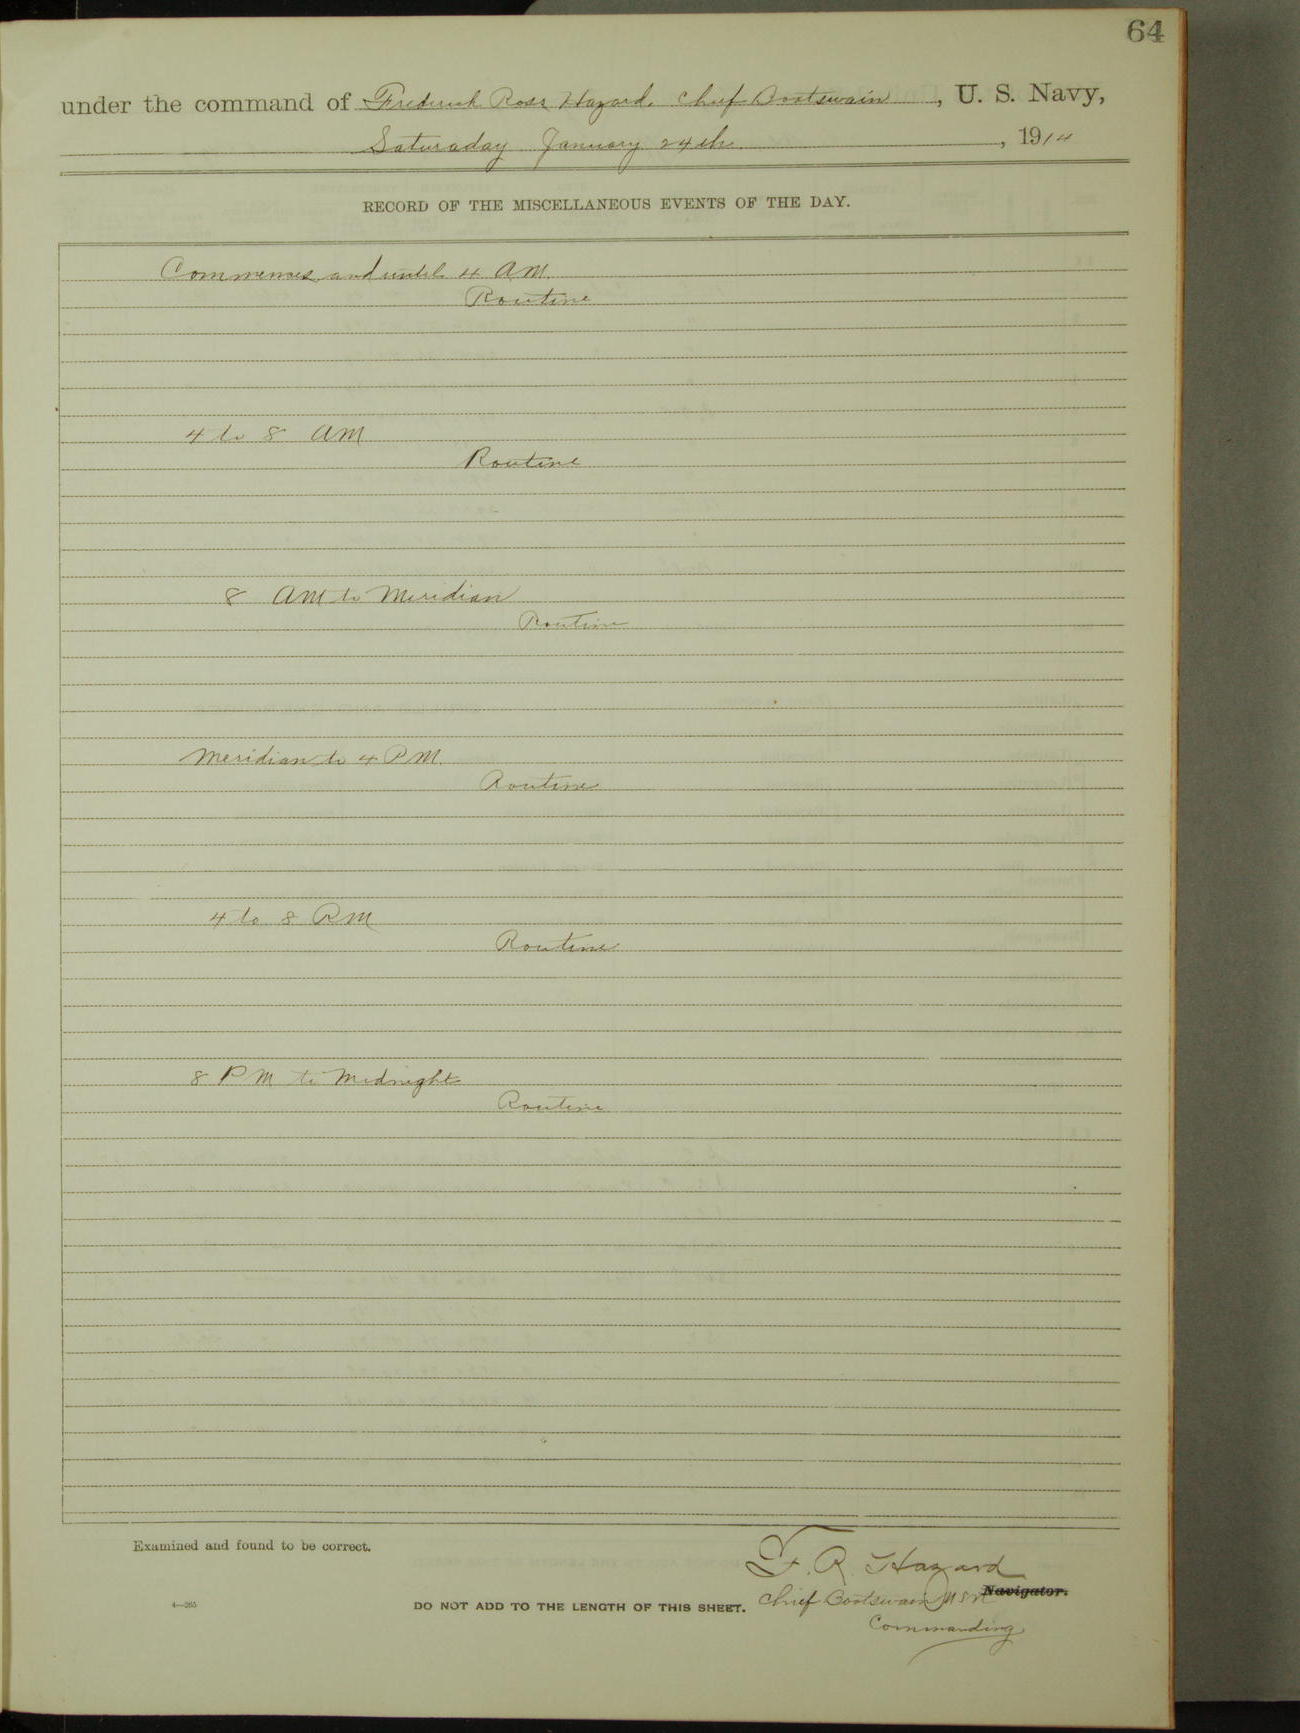 64
under the command of Frederick Ross Hazard, Chief Boatswain, U. S. Navy,
Saturaday January 24th, 1914
RECORD OF THE MISCELLANEOUS EVENTS OF THE DAY.
Commences and until 4 AM.
Routine
4 to 8 AM
Routine
8 AM to Meridian
Routine
Meridian to 4 PM.
Routine
4 to 8 PM
Routine
8 PM to Midnight
Routine
Examined and found to be correct.
F. R. Hazard
Chief Bootswain USN Navigator.
4—265
DO NOT ADD TO THE LENGTH OF THIS SHEET.
Commanding